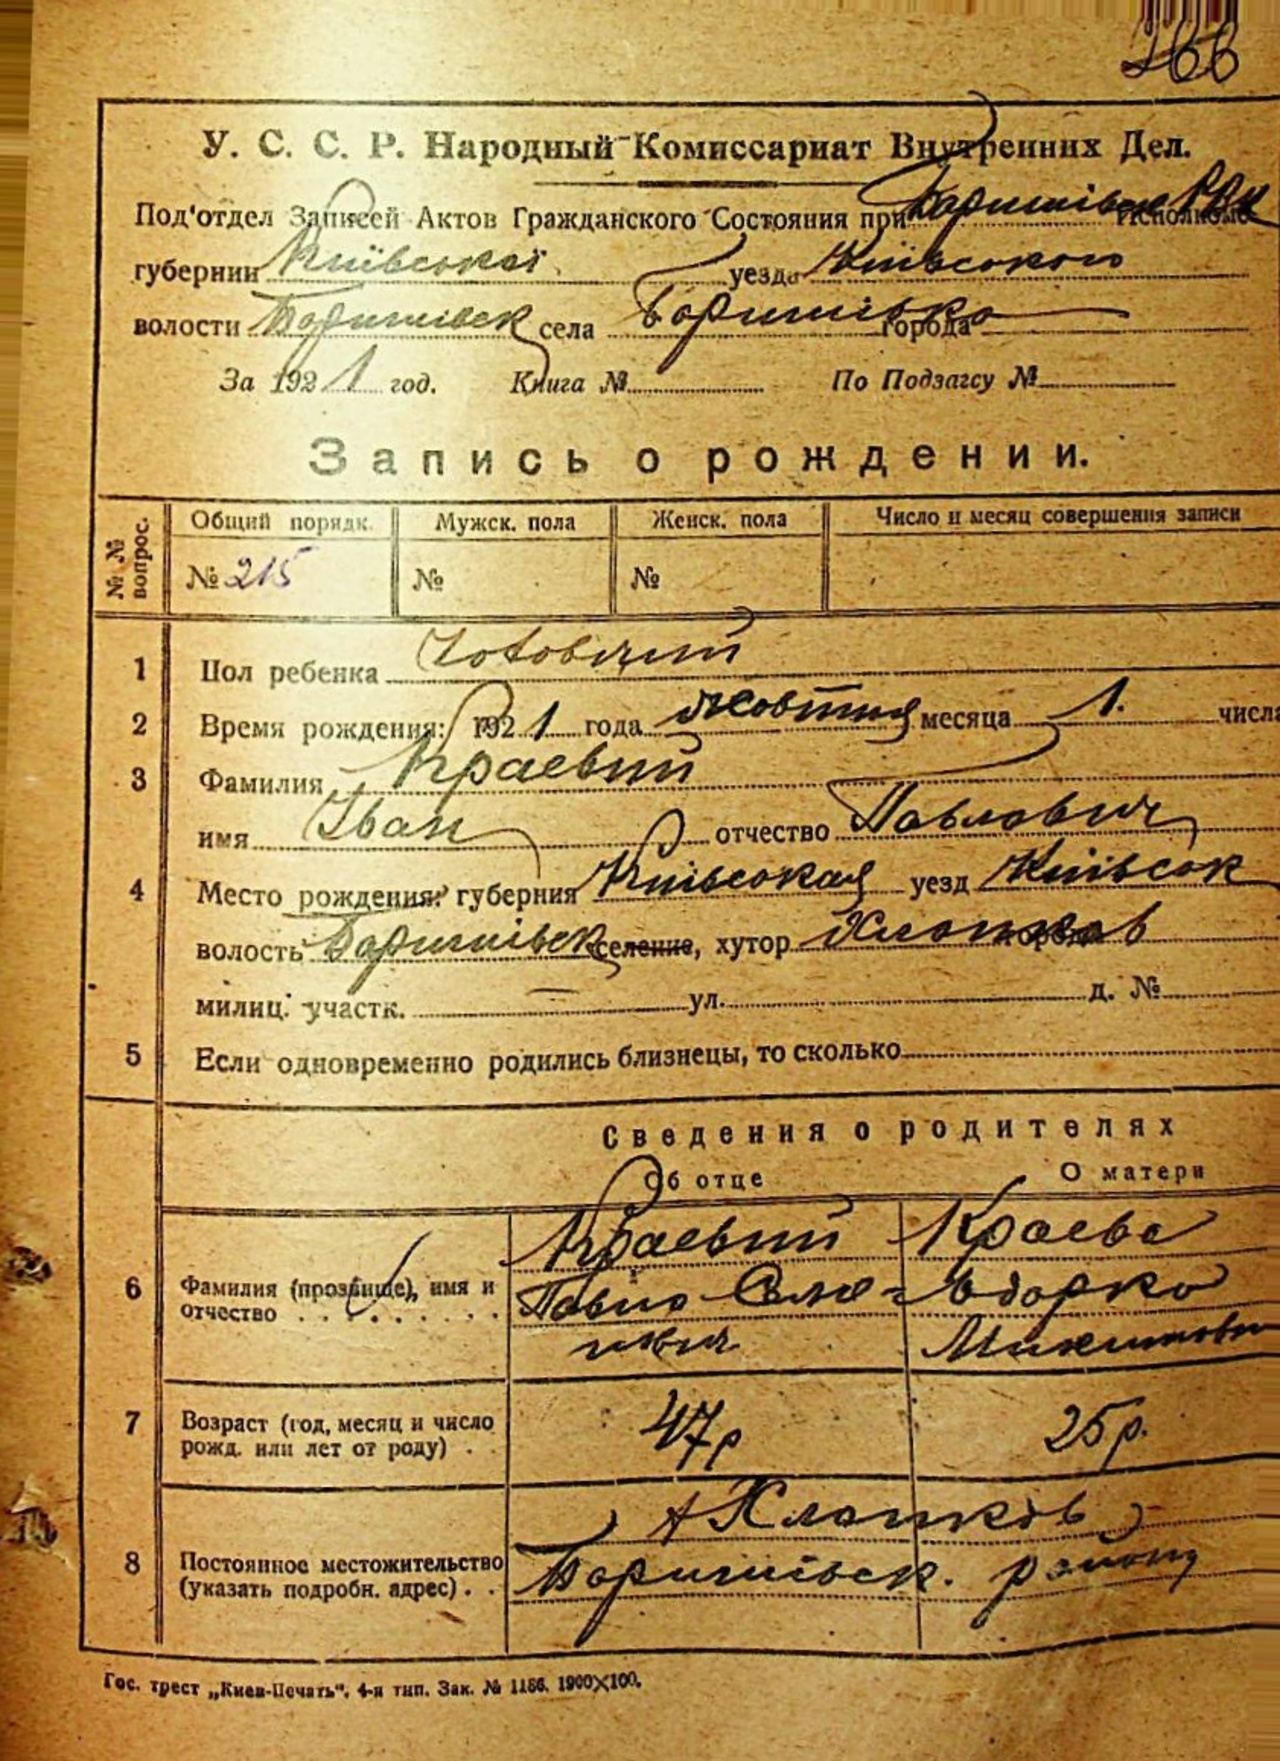 266
У. С. С. Р. Народный Комиссариат Внутренних Дел.
Под'отдел Записей Актов Гражданского Состояния при Баришівськ РВК Исполкоме
губернии Київської уезда Київського
волости Баришівськ села Баришівка города
За 1921 год. Книга № По Подзагсу №
Запись о рождении.
№ № вопрос.
Общий порядк. Мужск. пола Женск. пола Число и месяц совершения записи
№ 215 № №
1 Пол ребенка Чоловічий
2 Время рождения: 1921 года жовтня месяца 1. числа
3 Фамилия Краевий
имя Іван отчество Павлович
4 Место рождения: губерния Київськая уезд Київськ
волость Баришівськ селение, хутор города
милиц. участк. ул. д. №
5 Если одновременно родились близнецы, то сколько
Сведения о родителях
Об отце О матери
Краевий Краева
6 Фамилия (прозвище), имя и отчество Павло Одарка
7 Возраст (год, месяц и число рожд. или лет от роду) 47р 25р.
8 Постоянное местожительство (указать подробн. адрес)
Баришівськ. району
Гос. трест „Киев-Печать", 4-я тип. Зак. № 1186. 1900×100.